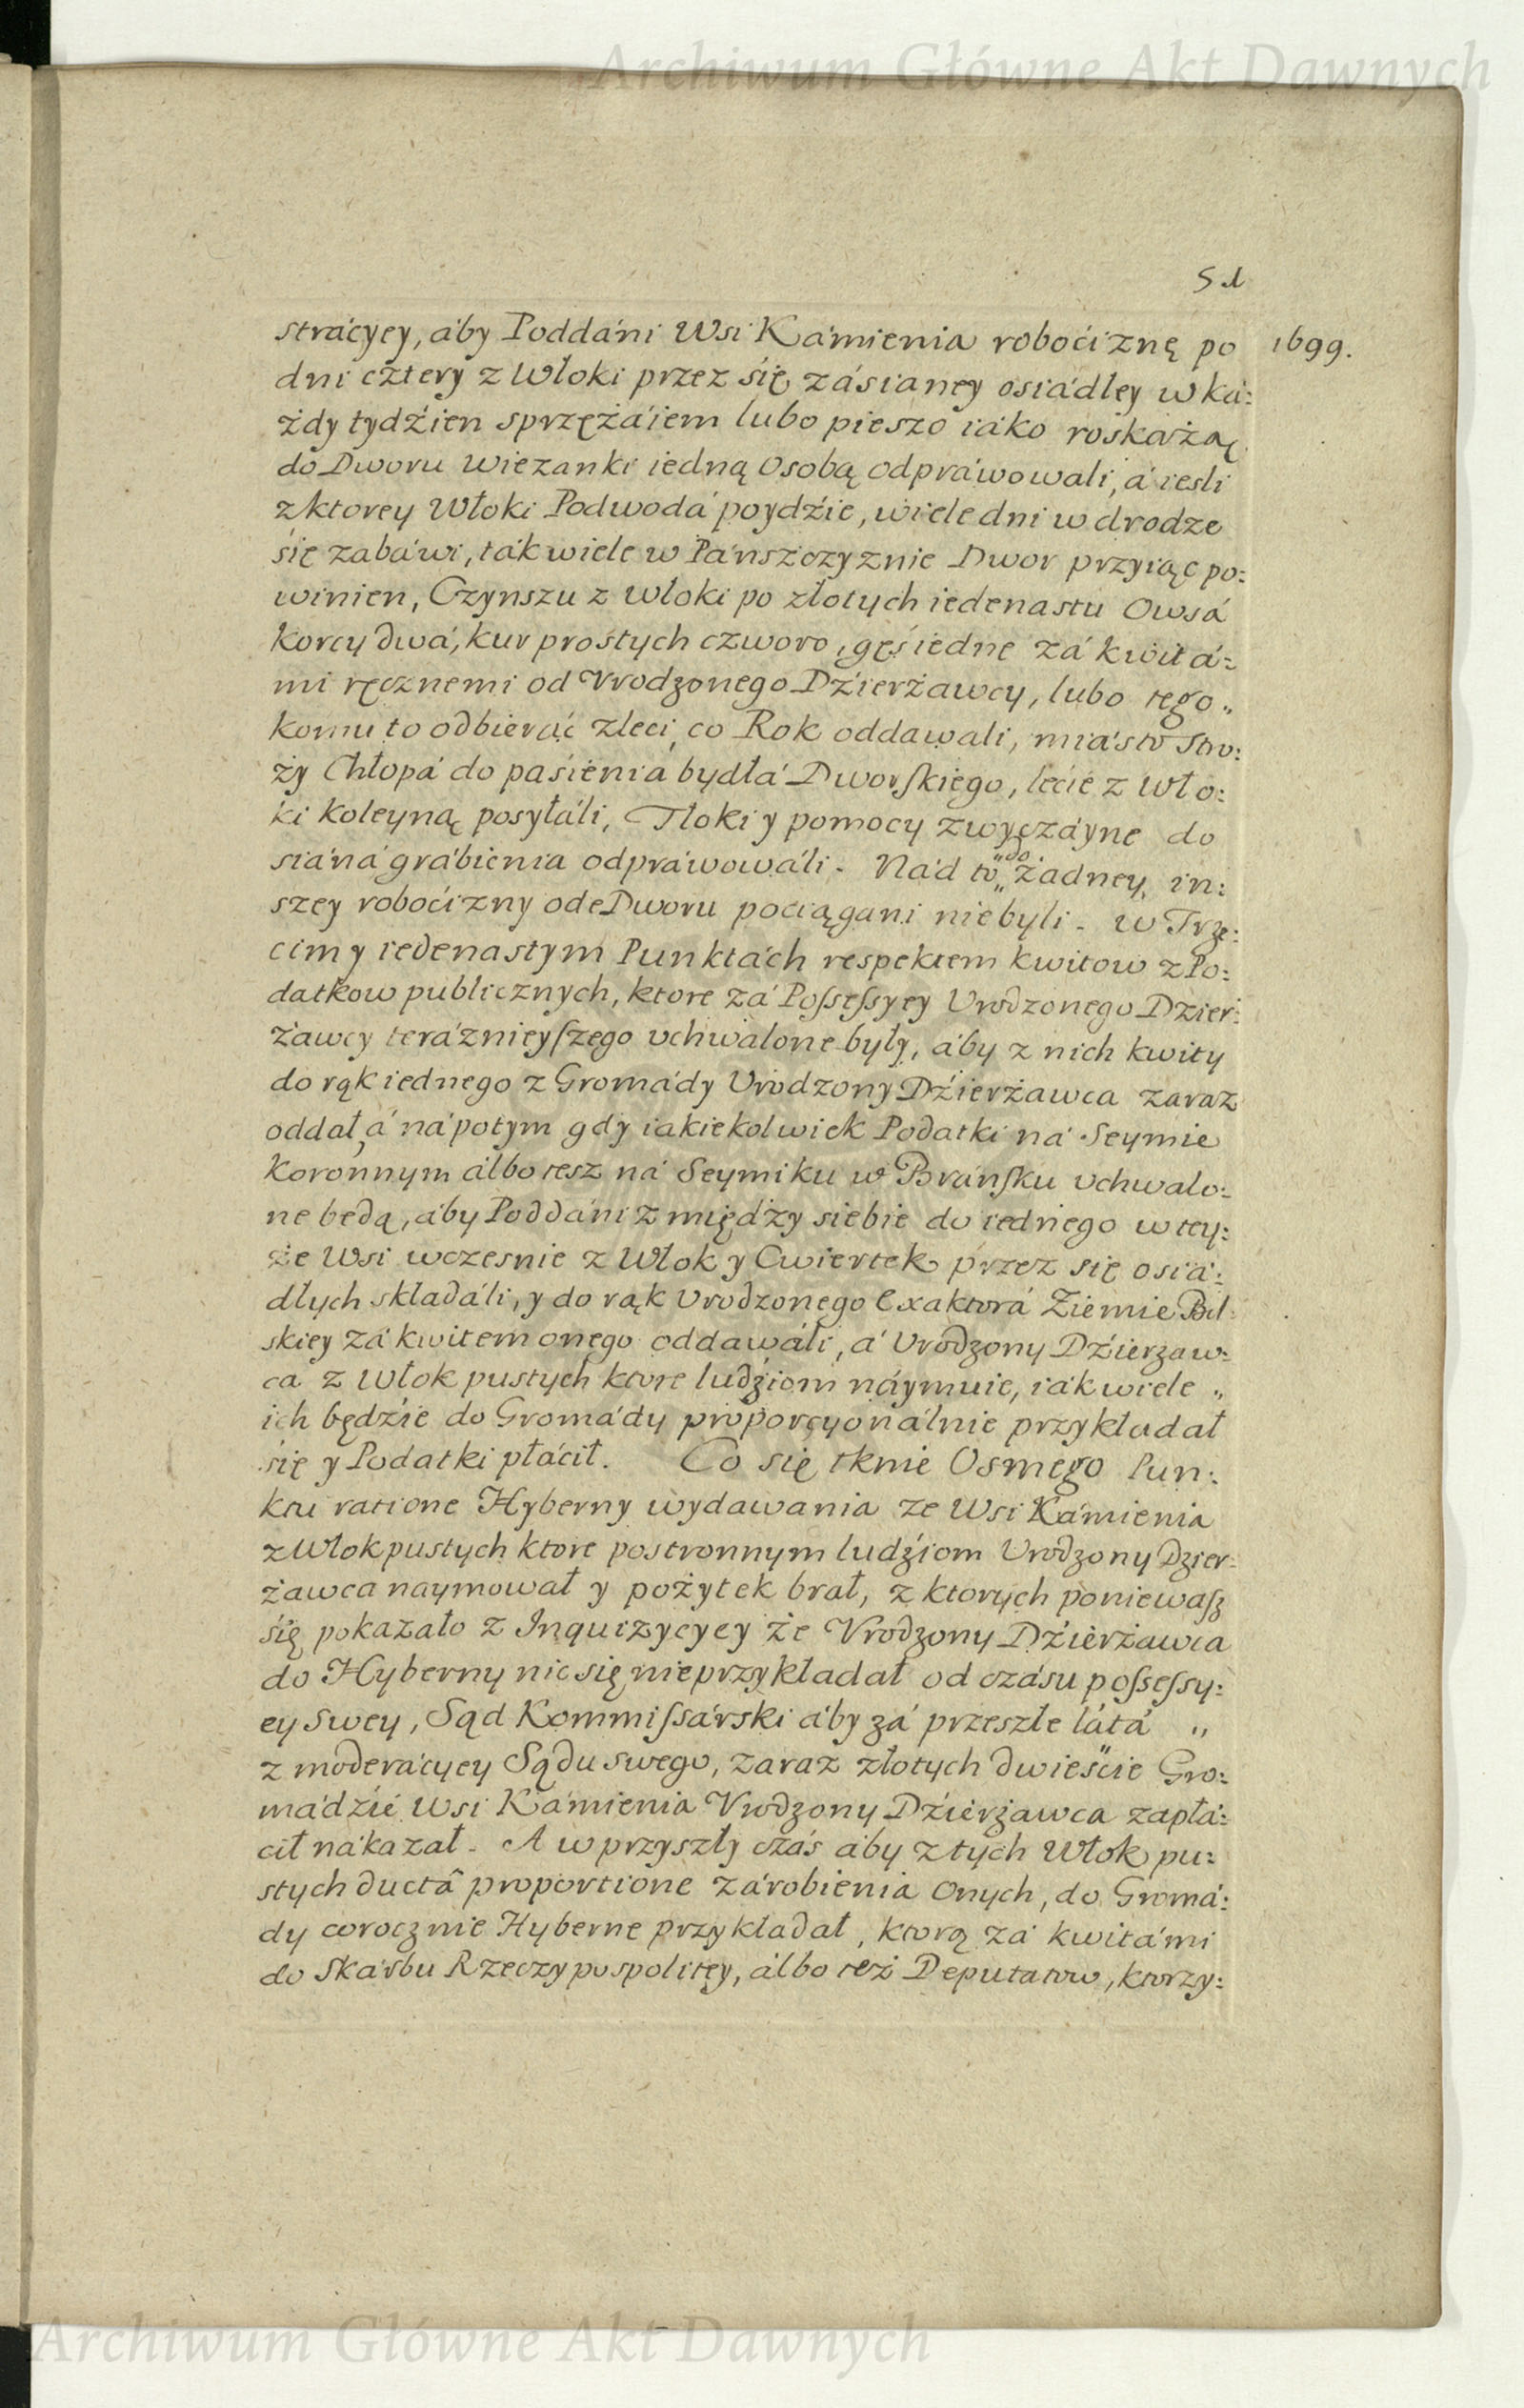 Archiwum Główne Akt Dawnych
51
strácyey, áby Poddáni Wsi Kámienia robociznę po 1699.
dni cztery z Włoki przez się zásianey osiádłey w ká:
żdy tydźien sprzężáiem lubo pieszo iáko roskażą
do Dworu Wiezanki iedną Osobą odpráwowali, á iesli
z ktorey Włoki Podwodá poydźie, wiele dni w drodze
się zabáwi, ták wiele w Pánszczyznie Dwor przyiąc po:
winien, Czynszu z Włoki po złotych iedenastu Owsá
korcy dwá, kur prostych czworo, gęś iednę zá kwitá:
mi ręcznemi od Vrodzonego Dźierżawcy, lubo tego „
komu to odbieráć zleci, co Rok oddawali, miásto Stro:
ży Chłopá do paśienia bydłá Dworſkiego, lecie z Wło:
ki koleyną posyłáli, Tłoki y pomocy zwyczáyne do
siáná grábienia odpráwowáli. Nád to „do żadney in:
szey robocizny ode Dworu pociągani niebyli. W Trze:
cim y iedenastym Punktách respektem kwitow z Po:
datkow publicznych, ktore zá Poſseſsyey Urodzonego Dzier:
żawcy teráznieyſzego vchwalone były, áby z nich kwity
do rąk iednego z Gromády Urodzony Dźierżawca zaraz
oddał, á nápotym gdy iakiekolwiek Podatki ná Seymie
koronnym álbo tesz ná Seymiku w Bránſku vchwalo:
ne będą, áby Poddáni z między siebie do iednego w tey:
że Wsi wczesnie z Włok y Cwiertek przez się osiá:
dłych składáli, y do rąk Vrodzonego Exaktorá Ziemie Bil:
skiey zá kwitem onego oddawáli, á Urodzony Dźierzaw:
ca z Włok pustych ktore ludźiom náymuie, iák wiele „
ich będźie do Gromády proporcyonálnie przykładał
się y Podatki płácił. Co się tknie Osmego Pun:
ktu ratione Hyberny wydawania ze Wsi Kámienia
z Włok pustych ktore postronnym ludźiom Urodzony Dzier:
żawca naymował y pożytek brał, z ktorych poniewaſz
się pokazało z Inquizycyey że Vrodzony Dźierżawca
do Hyberny nic się nieprzykładał od czásu poſseſsy:
ey Swey, Sąd Kommiſsárski áby zá przeszłe látá „
z moderácyey Sądu swego, zaraz złotych dwieście Gro:
mádźie Wsi Kámienia Vrodzony Dźierżawca zapłá:
cił nákazał. A w przyszły czás áby z tych Włok pu:
stych ductâ proportione zárobienia Onych, do Gromá:
dy corocznie Hyberne przykładał, ktorą zá kwitámi
do Skárbu Rzeczypospolitey, álbo też Deputatow, ktorzy:
Archiwum Główne Akt Dawnych